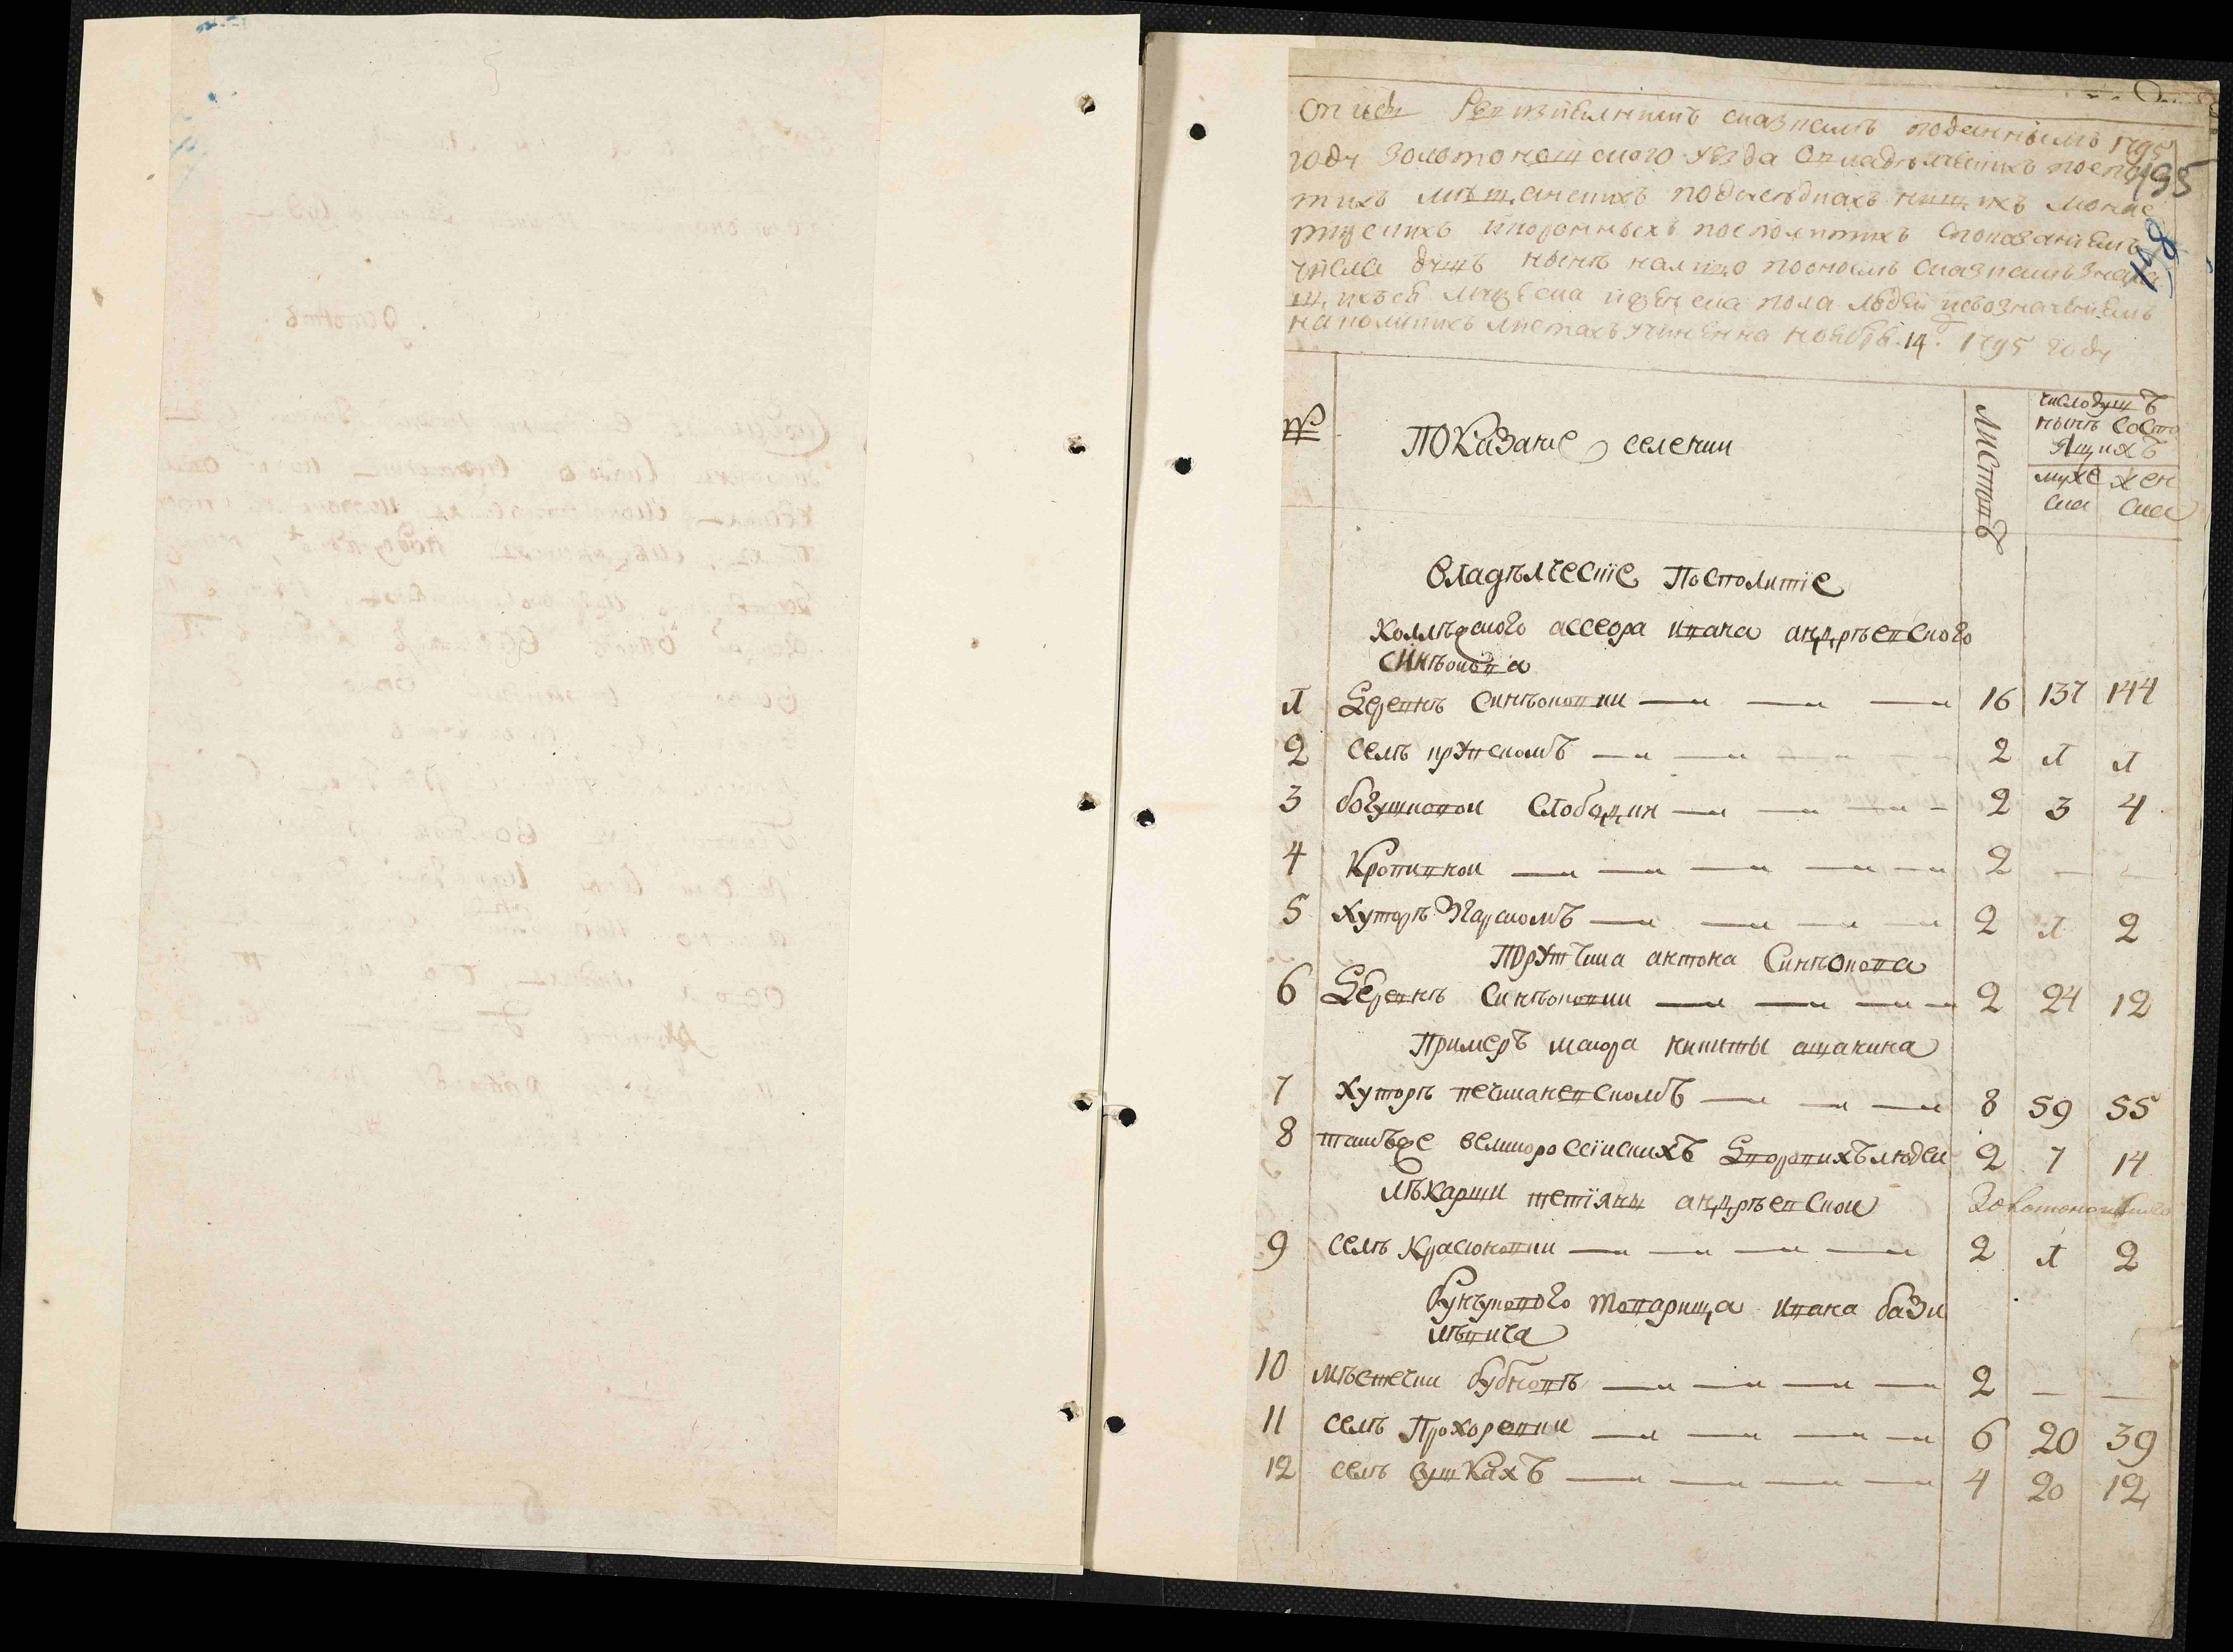 Описи Ревизийскимъ сказкамъ поданнымъ 1795
году Золотоношского уезда Овладѣлческихъ поспо
тихъ мѣщанскихъ подсусѣдкахъ нищихъ монас
тирскихъ икоронныхъ посполитихъ споказаниемъ
числа душъ нынѣ налицо поонымъ сказкамъ знача
щихъся мужеска иженска пола людей исозначениемъ
наколикихъ листахъ Учиненна ноября 14 1795 году
195
№
Показание селении
листовъ
число душъ
нынѣ состо
ящихъ
мужс жен
ска ска
Владѣлческие Посполитіе
Коллѣжского ассеора ивана андрѣевского
синѣокова
1 Деревнѣ Синѣоковки 16 137 144
2 селѣ крутскомъ 2 1 1
3 богушковои Слободки 2 3 4
4 Кропивнои 2 — —
5 Хуторѣ Згарскомъ 2 1 2
Порутчика антона Синѣокова
6 Деревнѣ Синѣоковки 2 24 12
Примеръ маиора никиты ащакина
7 Хуторѣ печканевскомъ 8 59 55
8 такъже великоросейскихъ дворовихъ людеи 2 7 14
лѣкарши тетіяны андрѣевскои
9 селѣ Красюковки 2 1 2
бунчукового товарища ивана бази
лѣвича
10 мѣстечки бубновѣ 2 — —
11 селѣ Прохоровки 6 20 39
12 селѣ сушкахъ 4 20 12